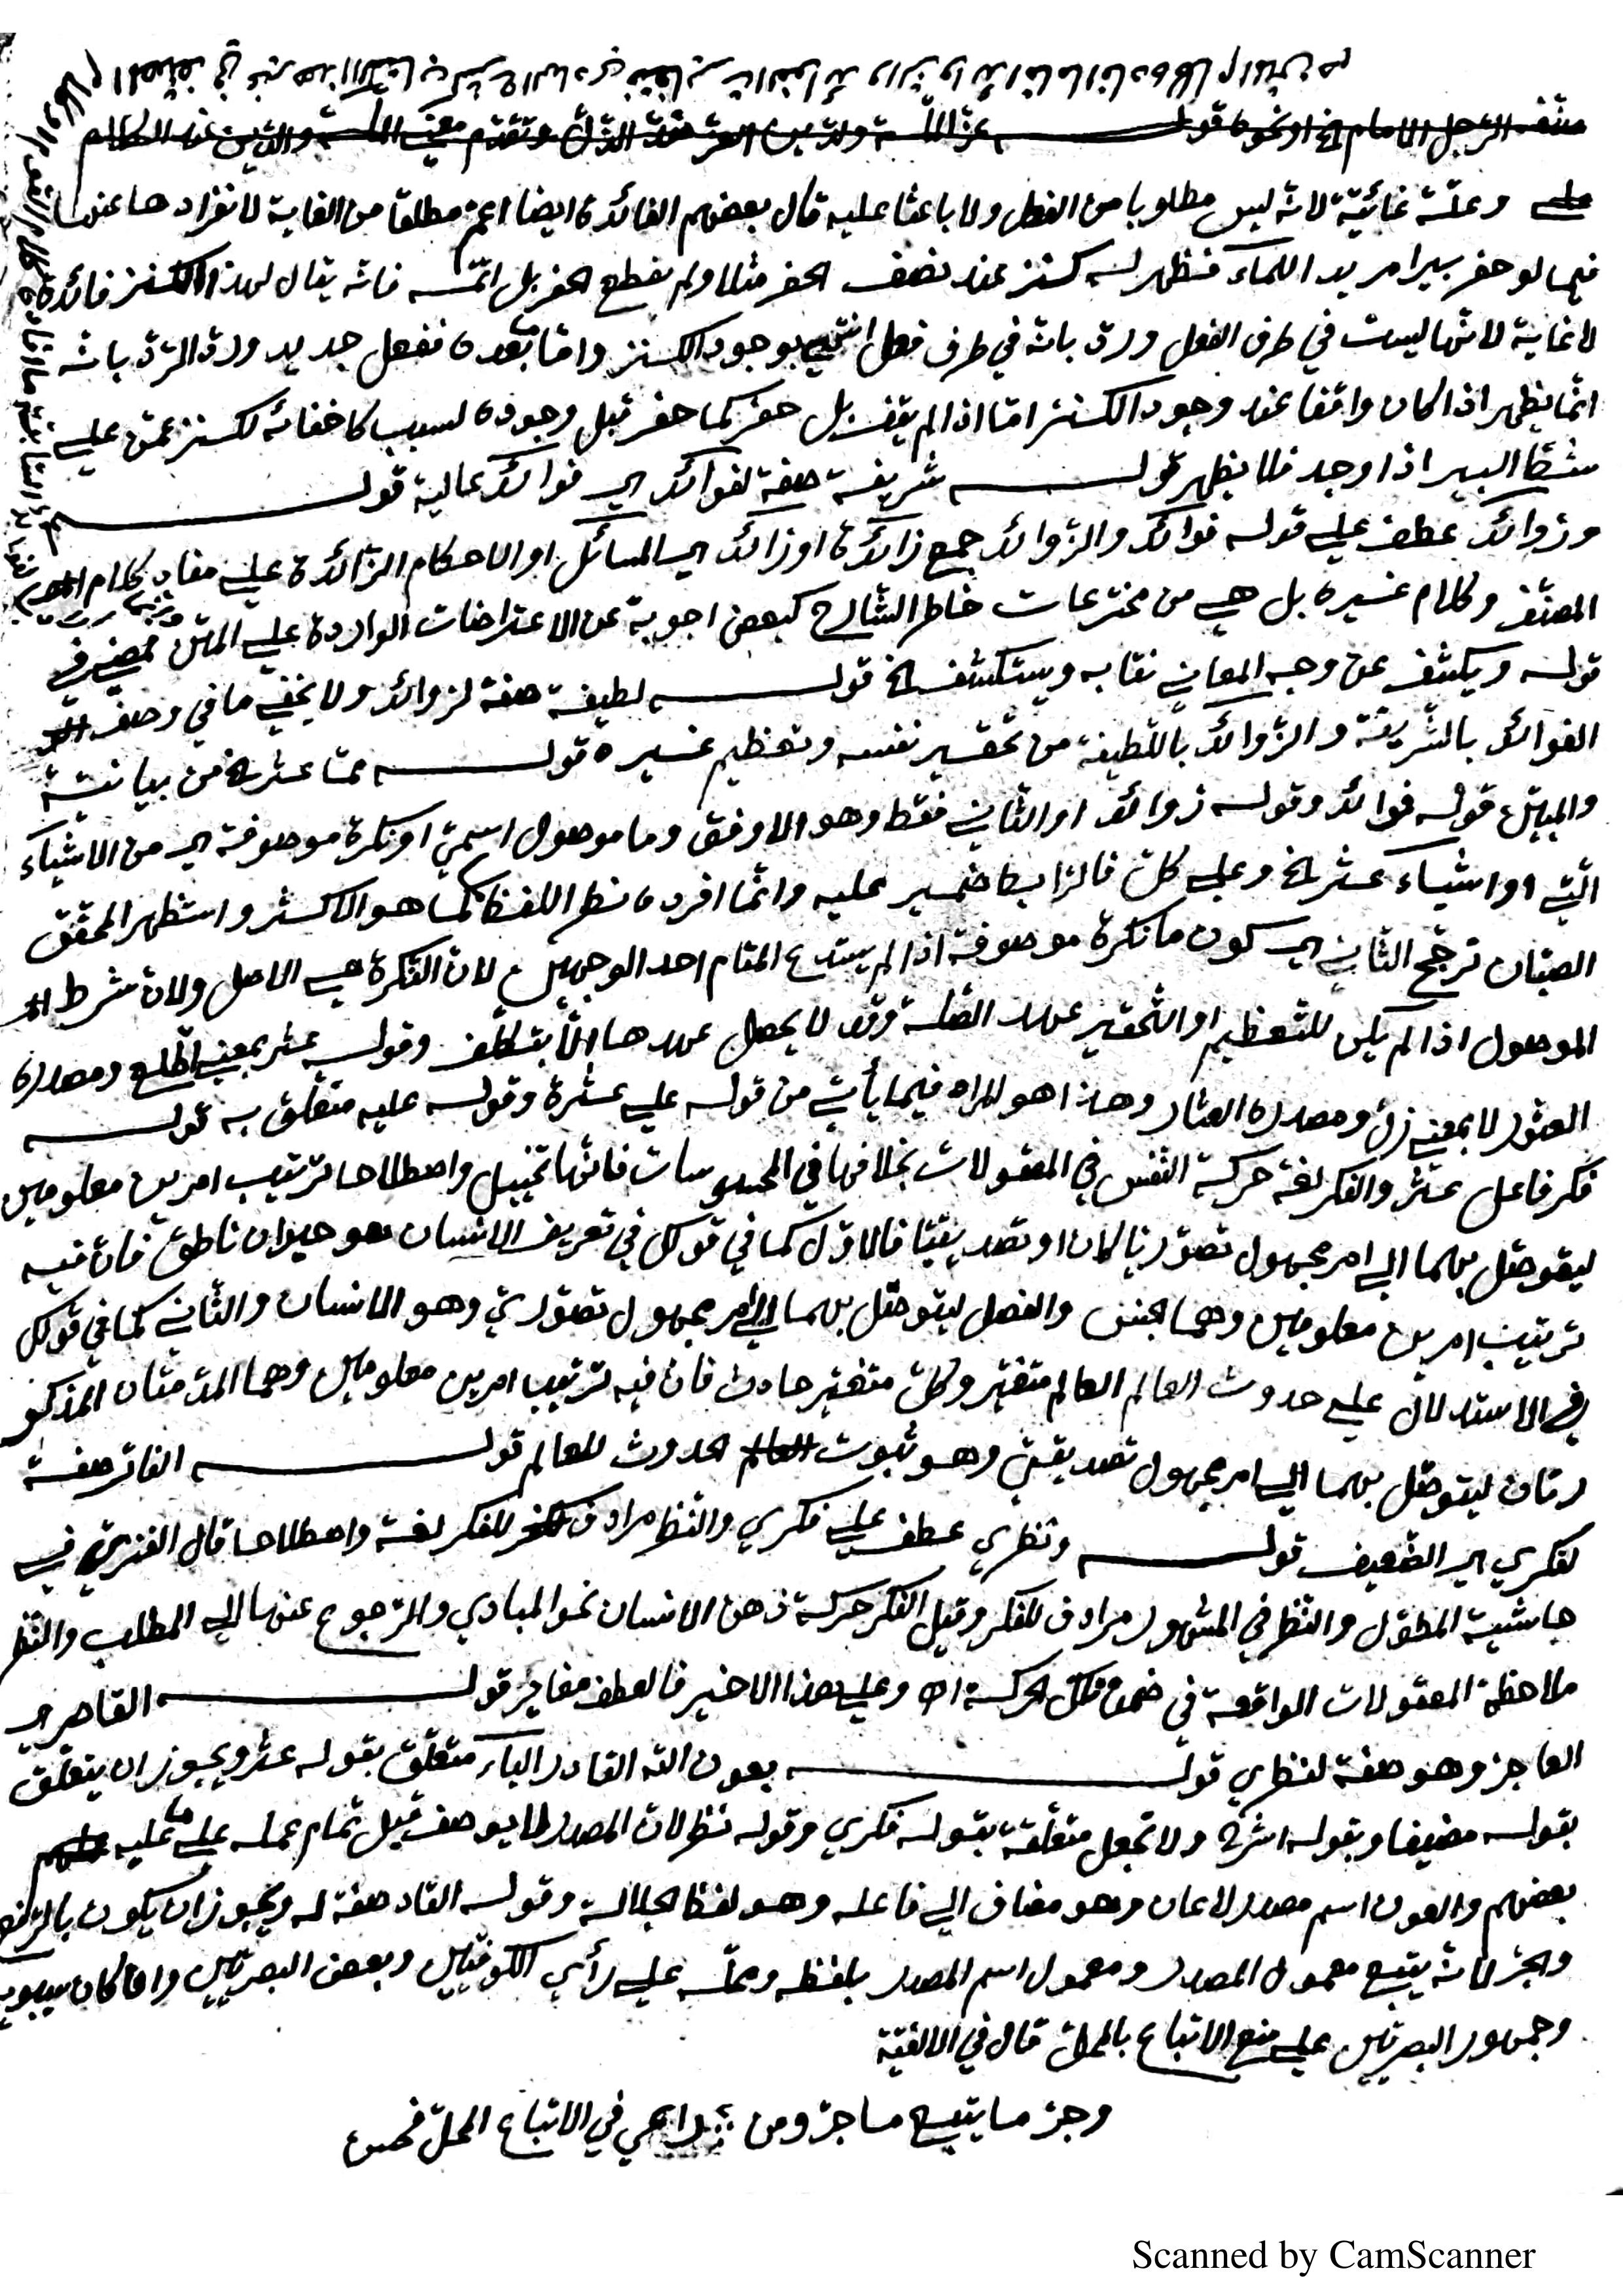 وعلة غائية لانه ليس مطلوبا من الفعل ولا باعثا عليه قال بعضهم الفائدة ايضا اعم مطلقا من الغاية لانفرادها عنها
فيما لو حفر بيرا مريد الماء فظهر له كنز عند نصف الحفر مثلا ولم يقطع الحفر بل اتمه فانه يقال لهذا الكنز فائدة
لا غاية لانها ليست في طرف الفعل ورد بانه في طرف فعل انتهى بوجود الكنز واما بعده ففعل جديد ورد الرد بانه
انما يظهر اذا كان واقفا عند وجود الكنز اما اذا لم يقف بل حفر كما حفر قبل وجوده لسبب كاخفائه لكنز عمن على
شط البير اذا وجد فلا يظهر قوله شريفة صفة لفوائد اي فوائد عالية قوله
وزوائد عطف على قوله فوائد والزوائد جمع زائدة او زائد اي المسائل او الاحكام الزائدة على مفاد كلام
المصنف وكلام غيره بل هي من مخترعات خاطر الشارح كبعض اجوبة عن الاعتراضات الواردة على المتن
قوله ويكشف عن وجه المعاني نقابه ويستكشف الخ قوله لطيفة صفة لزوائد ولا يخفى ما في وصف
الفوائد بالشريفة والزوائد باللطيفة من تحقير نفسه وتعظيم غيره قوله مما عثر الخ من بيانية
والمبين قوله فوائد وقوله زوائد او الثاني فقط وهو الاوفق وما موصول اسمي او نكرة موصوفة اي من الاشياء
التي او اشياء عثر الخ وعلى كل فالرابط ضمير عليه وانما افرده نظرا للفظ كما هو الاكثر واستظهر المحقق
الصبان ترجح الثاني اي كون ما نكرة موصوفة اذا لم يستدع المقام احد الوجهين لان النكرة هي الاصل ولان شرط
الموصول اذا لم يكن للتعظيم او التحقير عهد الصلة وقد لا يحصل عهدها الا بتكلف وقوله عثر بمعنى اطلع ومصدره
العثور لا بمعنى زل ومصدره العثار وهذا هو المراد فيما يأتي من قوله على عثرة وقوله عليه متعلق به قوله
فكر فاعل عثر والفكر لغة حركة النفس في المعقولات بخلافها في المحسوسات فانها تخييل واصطلاحا ترتيب امرين معلومين
ليتوصل بهما الى امر مجهول تصوريا كان او تصديقيا فالاول كما في قولك في تعريف الانسان هو حيوان ناطق فان فيه
ترتيب امرين معلومين وهما الجنس والفصل ليتوصل بهما الى امر مجهول تصوري وهو الانسان والثاني كما في قولك
في الاستدلال على حدوث العالم العالم متغير وكل متغير حادث فان فيه ترتيب امرين معلومين وهما المقدمتان المذكو
رتان ليتوصل بهما الى امر مجهول تصديقي وهو ثبوت الحدوث للعالم قوله الفاتر صفة
لفكري اي الضعيف قوله ونظري عطف على فكري والنظر مرادف للفكر لغة واصطلاحا قال الفنري في
حاشية المطول والنظر في المشهور مرادف للفكر وقيل الفكر حركة ذهن الانسان نحو المبادي والرجوع عنها الى المطلب والنظر
ملاحظة المعقولات الواقعة في ضمن تلك الحركة اه وعلى هذا الاخير فالعطف مغاير قوله القاصر اي
العاجز وهو صفة لنظري قوله بعون الله القادر الباء متعلق بقوله عثر ويجوز ان يتعلق
بقوله مضيفا وبقوله اشرح ولا تجعل متعلقة بقوله فكري وقوله نظر لان المصدر لا يوصف قبل تمام عمله على ما عليه
بعضهم والعون اسم مصدر لاعان وهو مضاف الى فاعله وهو لفظ الجلالة وقوله القادر صفة له ويجوز ان يكون بالرفع
والجر لانه يتبع معمول المصدر ومعمول اسم المصدر بلفظه ومحله على رأي الكوفيين وبعض البصريين وان كان سيبويه
وجمهور البصريين على منع الاتباع بالمحل قال في الالفية
وجر ما يتبع ما جر ومن راعى في الاتباع المحل فحسن
Scanned by CamScanner